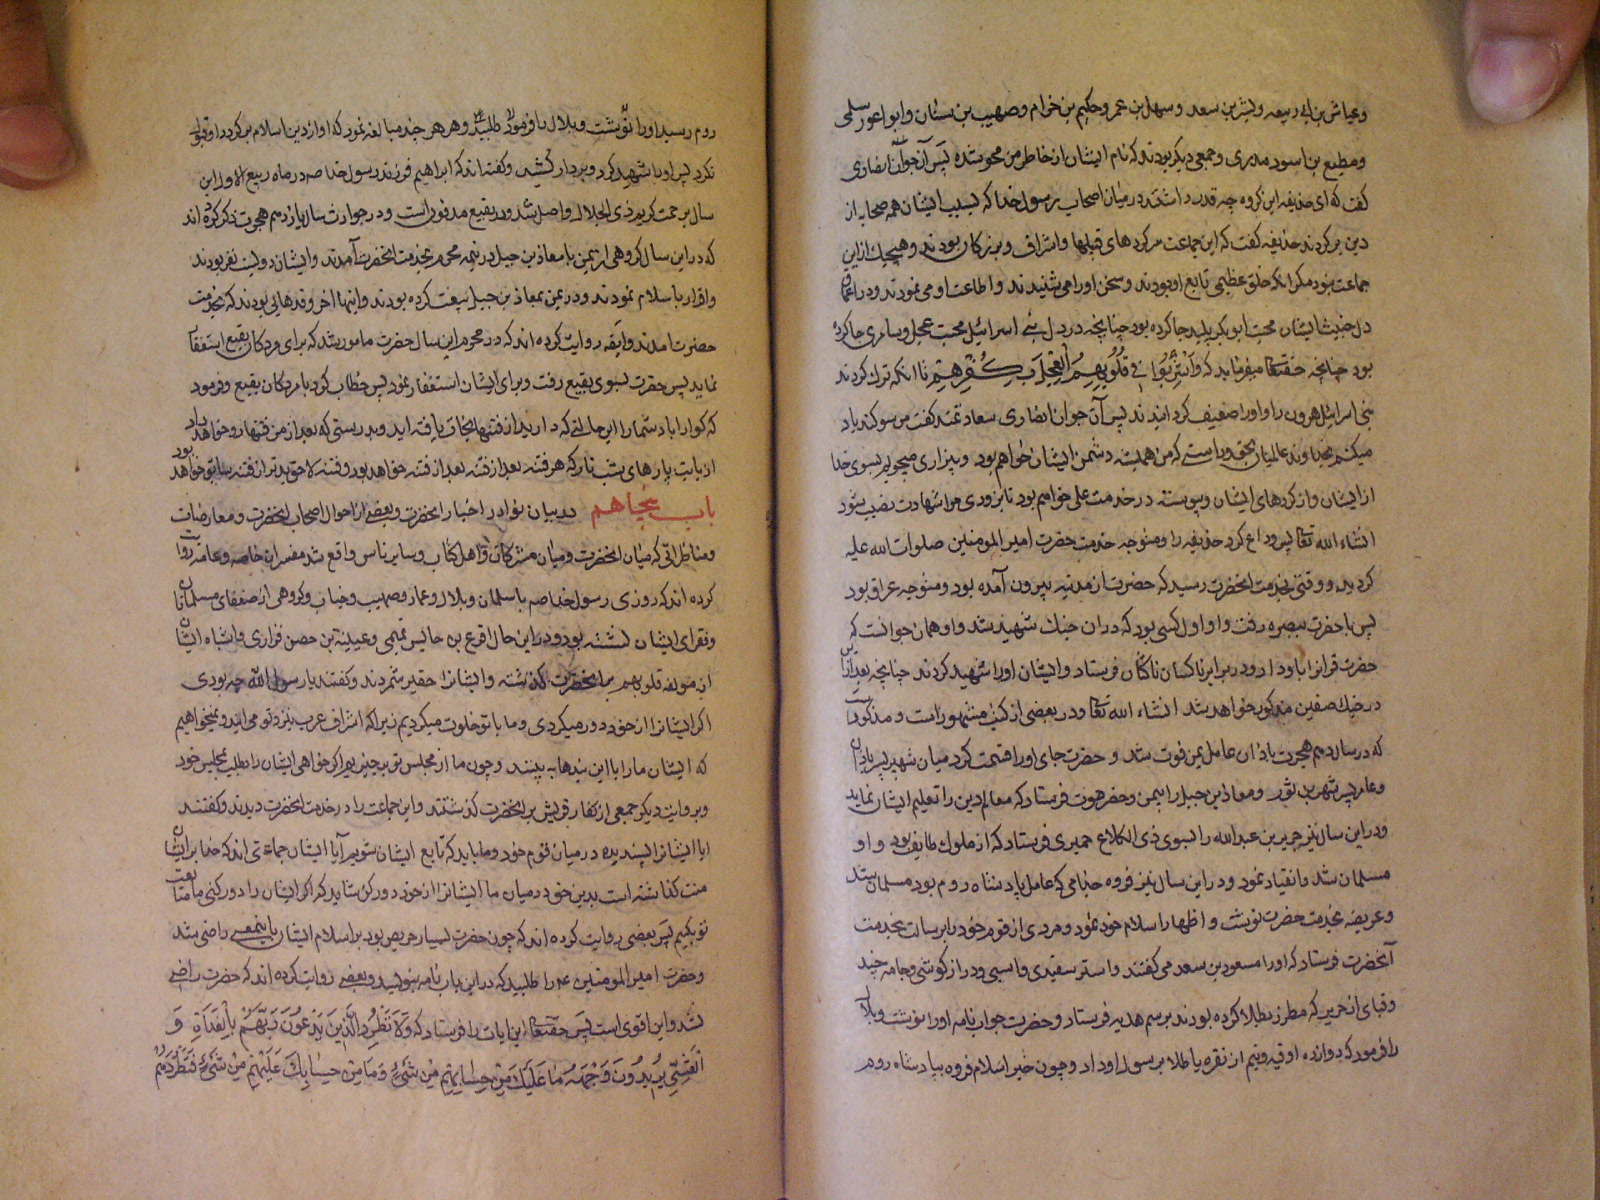 وعیاش بن ابی ربیعه وبشر بن سعد وسهل بن عمر وحکیم بن خرام وصهیب بن سنان وابو اعور سلمی
ومطیع بن اسود مدری وجمعی دیکر بودند که نام ایشان از خاطر من محو شده پس آن جوان انصاری
کفت که ای حذیفه این کروه چه قدر داشتند در میان اصحاب رسول خدا که بسبب ایشان همه صحابه از
دین برکردند حذیفه کفت که این جماعت سرکرده های قبیلها واشراف وبزرکان بودند وهیچیك از این
جماعت نبود مکر آنکه خلق عظیمی تابع او بودند وسخن او را می شنیدند واطاعت او می نمودند ودر اعماق
دل خبیث ایشان محبت ابو بکر پلید جا کرده بود چنانچه در دل بنی اسرائیل محبت عجل وسامری جا کرده
بود چنانچه حقتعالی میفرماید که وَاُشْرِبُوا فی قُلُوبِهِمُ الْعِجْلَ بِكُفْرِهِمْ تا آنکه ترك کردند
بنی اسرائیل هرون را واو را ضعیف کردانیدند پس آن جوان انصاری سعادتمند کفت من سوکند یاد
میکنم بخداوند عالمیان بحق وراستی که من همیشه دشمن ایشان خواهم بود وبیزاری میجویم بسوی خدا
از ایشان واز کرده های ایشان وپیوسته در خدمت علی خواهم بود تا بزودی مرا شهادت نصیب شود
انشاء الله تعالی پس وداع کرد حذیفه را ومتوجه خدمت حضرت امیر المومنین صلوات الله علیه
کردید ووقتی بخدمت انحضرت رسید که حضرت از مدینه بیرون آمده بود ومتوجه عراق بود
پس با حضرت ببصره رفت واو اول کسی بود که در ان جنك شهید شد واو همان جوانست که
حضرت قرانرا باو داد ودر برابر ناکسان ناکثان فرستاد وایشان او را شهید کردند چنانچه بعد از این
در جنك صفین مذکور خواهد شد انشاء الله تعالی ودر بعضی از کتب مشهور است ومذکور است
که در سال دهم هجرت باذان عامل یمن فوت شد وحضرت جای او را قسمت کرد میان شهر پسر باذان
وعامر پسر شهر بن ثور ومعاذ بن جبل را بیمن وحضرموت فرستاد که معالم دین را تعلیم ایشان نماید
ودر این سال نیز جریر بن عبد الله را بسوی ذی الکلاع حمیری فرستاد که از ملوك طائف بود واو
مسلمان شد وانقیاد نمود ودر این سال نیز فروه جذامی که عامل پادشاه روم بود مسلمان شد
وعریضه بخدمت حضرت نوشت واظهار اسلام خود نمود ومردی از قوم خود را برسالت بخدمت
آنحضرت فرستاد که او را مسعود بن سعد می کفتند واستر سفیدی واسبی ودراز کوشی وجامه چند
وقبای از حریر که مطرز بطلا کرده بودند برسم هدیه فرستاد وحضرت جواب نامه او را نوشت وبلال
را فرمود که دوازده اوقیه ونیم از نقره یا طلا برسول او داد وچون خبر اسلام فروه بپادشاه روم
روم رسید او را نوشت وبلال را فرمود طلبید وهر چند مبالغه نمود که او از دین اسلام برکردد او قبول
نکرد پس او را شهید کرد وبر دار کشید وکفته اند که ابراهیم فرزند رسول خدا صم در ماه ربیع الاول این
سال برحمت کریم ذی الجلال واصل شد ودر بقیع مدفون است ودر حوادث سال یازدهم هجرت ذکر کرده اند
که در این سال کروهی از یمن با معاذ بن جبل در نیمه محرم بخدمت انحضرت آمدند وایشان دویست نفر بودند
واقرار باسلام نمودند ودر یمن بمعاذ بن جبل بیعت کرده بودند وانها آخر وفدهایی بودند که بخدمت
حضرت آمدند وایضه روایت کرده اند که در محرم این سال حضرت مامور شد که برای مردکان بقیع استغفار
نماید پس حضرت بسوی بقیع رفت وبرای ایشان استغفار نمود پس خطاب کرد با مردکان بقیع وفرمود
که کوارا باد شما را این حالتی که دارید از فتنها نجات یافته اید وبدرستی که بعد از من فتنها رو خواهد داد
از بابت پارهای شب تار که هر فتنه بعد از فتنه بعد از فتنه خواهد بود وفتنه لاحق بدتر از فتنه سابق خواهد بود
باب پنجاهم در بیان نوادر اخبار انحضرت وبعضی از احوال اصحاب انحضرت ومعارضات
ومناظراتی که میان انحضرت ومیان مشرکان واهل کتاب وسایر ناس واقع شد مفسران خاصه وعامه روایت
کرده اند که روزی رسول خدا صم با سلمان وبلال وعمار وصهیب وخباب وکروهی از ضعفای مسلمانان
وفقرای ایشان نشسته بود ودر این حال اقرع بن حابس تمیمی وعیینة بن حصن فزاری واشباه ایشان
از مولفه قلوبهم بر انحضرت کذشته وایشانرا حقیر شمردند وکفتند یا رسول الله چه بودی
اکر ایشانرا از خود دور میکردی وما با تو خلوت میکردیم زیرا که اشراف عرب بنزد تو می ایند ونمیخواهیم
که ایشان ما را با این بندها به بینند وچون ما از مجلس تو برخیزیم اکر خواهی ایشان را بطلب بمجلس خود
وبروایت دیکر جمعی از کفار قریش بر انحضرت کذشتند واین جماعت را در خدمت انحضرت دیدند وکفتند
ایا ایشانرا پسندیده در میان قوم خود وما باید که تابع ایشان شویم آیا ایشان جماعتی اند که خدا بر ایشان
منت کذاشته است بدین حق در میان ما ایشانرا از خود دور کن شاید که اکر ایشان را دور کنی ما متابعت
تو بکنیم پس بعضی روایت کرده اند که چون حضرت بسیار حریص بود بر اسلام ایشان باینمعنی راضی شد
وحضرت امیر المومنین عم را طلبید که در این باب نامه بنویسد وبعضی روایت کرده اند که حضرت راضی
نشد واین اقوی است پس حقتعالی این ایات را فرستاد که وَلَا تَطْرُدِ الَّذِینَ یَدْعُونَ رَبَّهُمْ بِالْغَدَاةِ وَ
الْعَشِیِّ یُرِیدُونَ وَجْهَهُ مَا عَلَیْكَ مِنْ حِسَابِهِمْ مِنْ شَیْءٍ وَمَا مِنْ حِسَابِكَ عَلَیْهِمْ مِنْ شَیْءٍ فَتَطْرُدَهُمْ